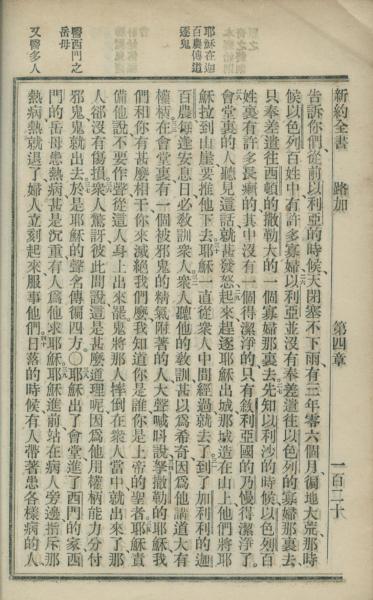 耶穌在迦
百農傳道
逐鬼
醫西門之
岳母
又醫多人
新約全書
路加
第四章
一百二十
告訴你們從前以利亞的時候天閉塞不下雨有三年零六個月徧地大荒那時
候以色列百姓中有許多寡婦以利亞並沒有奉差遣往以色列的寡婦那裏去
只奉差遣往西頓的撒勒大的一個寡婦那裏去先知以利沙的時候以色列百
姓裏有許多長癩的其中沒有一個得潔淨的只有敘利亞國的乃慢得潔淨了
會堂裏的人聽見這話就甚發怒起來趕逐耶穌出城那城造在山上他們將耶
穌拉到山崖要推他下去耶穌一直從衆人中間經過就去了到了加利利的迦
百農每逢安息日必教訓衆人衆人聽他的教訓甚以爲希奇因爲他講道大有
權柄在會堂裏有一個被邪鬼的精氣附著的人大聲喊叫說拏撒勒的耶穌我
們和你有甚麽相干你來滅絕我們麽我知道你是誰你是上帝的聖者耶穌責
備他說不要作聲從這人身上出來罷鬼將那人摔倒在衆人當中就出來了那
人卻沒有傷損衆人驚訝彼此間說這是甚麽道理呢因爲他用權柄能力分付
邪鬼鬼就出去於是耶穌的聲名傳徧四方○耶穌出了會堂進了西門的家西
門的岳母患熱病甚是沉重有人爲他求耶穌耶穌進前站在病人旁邊指斥那
熱病熱就退了婦人立刻起來服事他們日落的時候有人帶著患各樣病的人